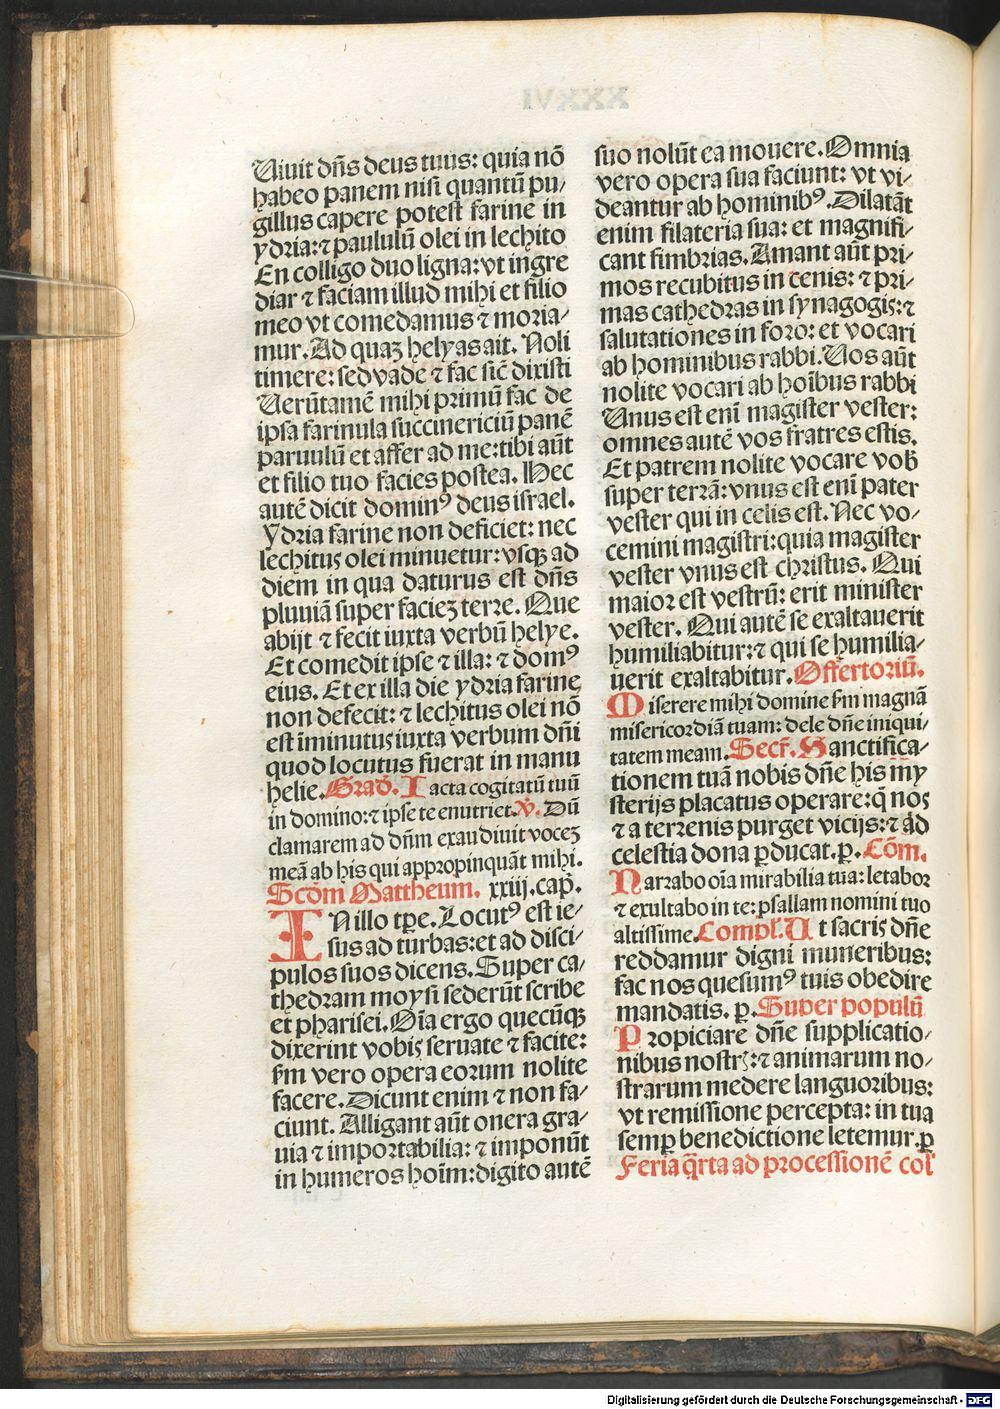 Uiuit dn̄s deus tuus: quia nō
habeo panem nisi quantū pu/
gillus capere potest farine in
ydria: ⁊ paululū olei in lechito
En colligo duo ligna: vt ingre
diar ⁊ faciam illud mihi et filio
meo vt comedamus ⁊ moria/
mur. Ad quaꝫ helyas ait. Noli
timere: sed vade ⁊ fac sic̄ dixisti
Uerūtamē mihi primū fac de
ipsa farinula succinericiū panē
paruulū et affer ad me: tibi aūt
et filio tuo facies postea. Hec
autē dicit dominꝰ deus israel.
Ydria farine non deficiet: nec
lechitus olei minuetur: vsqꝫ ad
diem in qua daturus est dn̄s
pluuiā super facieꝫ terre. Que
abijt ⁊ fecit iuxta verbū helye.
Et comedit ipse ⁊ illa: ⁊ domꝰ
eius. Et ex illa die ydria farine
non defecit: ⁊ lechitus olei nō
est īminutus iuxta verbum dn̄i
quod locutus fuerat in manu
helie. Grad̄. Iacta cogitatū tuū
in domino: ⁊ ipse te enutriet. V̄. Dū
clamarem ad dn̄m exaudiuit voceꝫ
meā ab his qui appropinquāt mihi.
Scd̄m Mattheum. xxiij. cap̄.
IN illo tꝑe. Locutꝰ est ie/
sus ad turbas: et ad disci/
pulos suos dicens. Super ca/
thedram moysi sederūt scribe
et pharisei. Oīa ergo quecūqꝫ
dixerint vobis seruate ⁊ facite:
fm̄ vero opera eorum nolite
facere. Dicunt enim ⁊ non fa/
ciunt. Alligant aūt onera gra/
uia ⁊ importabilia: ⁊ imponūt
in humeros hoīm: digito autē
suo nolūt ea mouere. Omnia
vero opera sua faciunt: vt vi/
deantur ab hominibꝰ. Dilatāt
enim filateria sua: et magnifi/
cant fimbrias. Amant aūt pri/
mos recubitus in cenis: ⁊ pri/
mas cathedras in synagogis: ⁊
salutationes in foro: et vocari
ab hominibus rabbi. Uos aūt
nolite vocari ab hoībus rabbi
Unus est enī magister vester:
omnes autē vos fratres estis.
Et patrem nolite vocare vob̄
super terrā: vnus est enī pater
vester qui in celis est. Nec vo/
cemini magistri: quia magister
vester vnus est christus. Qui
maior est vestrū: erit minister
vester. Qui autē se exaltauerit
humiliabitur: ⁊ qui se humilia/
uerit exaltabitur. Offertoriū.
Miserere mihi domine fm̄ magnā
misericordiā tuam: dele dn̄e iniqui/
tatem meam. Secr̄. Sanctifica/
tionem tuā nobis dn̄e his my
sterijs placatus operare: q̄ nos
⁊ a terrenis purget vicijs: ⁊ ad
celestia dona ꝑducat. ꝑ. Cōm.
Narrabo oīa mirabilia tua: letabor
⁊ exultabo in te: psallam nomini tuo
altissime. Compl̄. Ut sacris dn̄e
reddamur digni muneribus:
fac nos quesumꝰ tuis obedire
mandatis. ꝑ. Super populū
Propiciare dn̄e supplicatio/
nibus nostrꝭ: ⁊ animarum no/
strarum medere languoribus:
vt remissione percepta: in tua
semꝑ benedictione letemur. ꝑ
Feria q̄rta ad processionē col̄
XXXVI
Digitalisierung gefördert durch die Deutsche Forschungsgemeinschaft - DFG